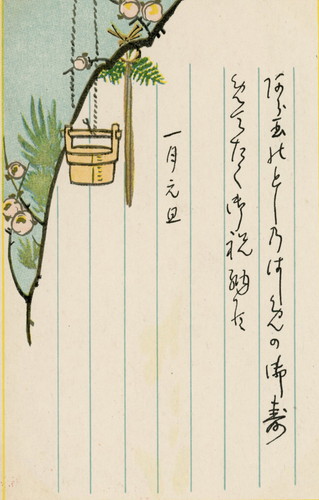 阿ら玉能とし乃はしめの御壽
めてたく御祝納候
一月元旦